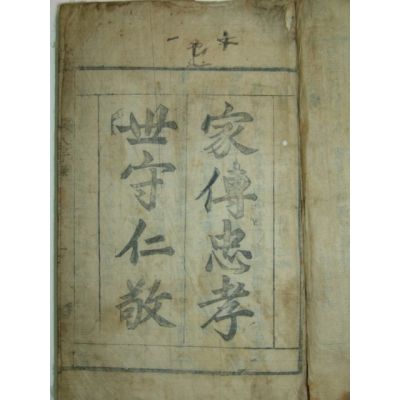 家傳忠孝
世守仁敬